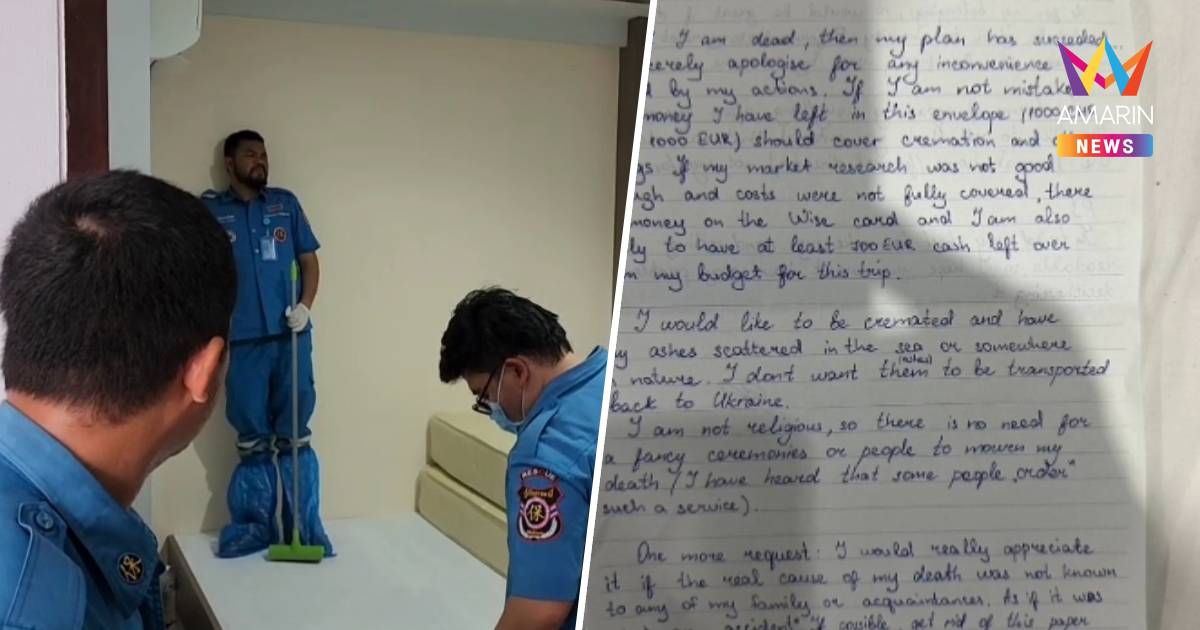 AMARIN
NEWS
RESCUE
保
I am dead, then my plan has succeeded
apologise for any inconvenience
by my actions. If I am not
money I have left in this envelope (1000
1000 EUR) should cover cremation and
If my market research was not good
and costs were not fully covered, there
money on the Wise card and I am also
to have at least 700 EUR cash left over
my budget for this trip.
I would like to be cremated and have
ashes scattered in the sea or somewhere
nature. I don't want them (ashes) to be transported
back to Ukraine.
I am not religious, so there is no need for
a fancy ceremonies or people to mourn my
death (I have heard that some people „order"
such a service).
One more request: I would really appreciate
it if the real cause of my death was not known
to any of my family or acquaintances. As if it was
accident" If posible, get rid of this paper